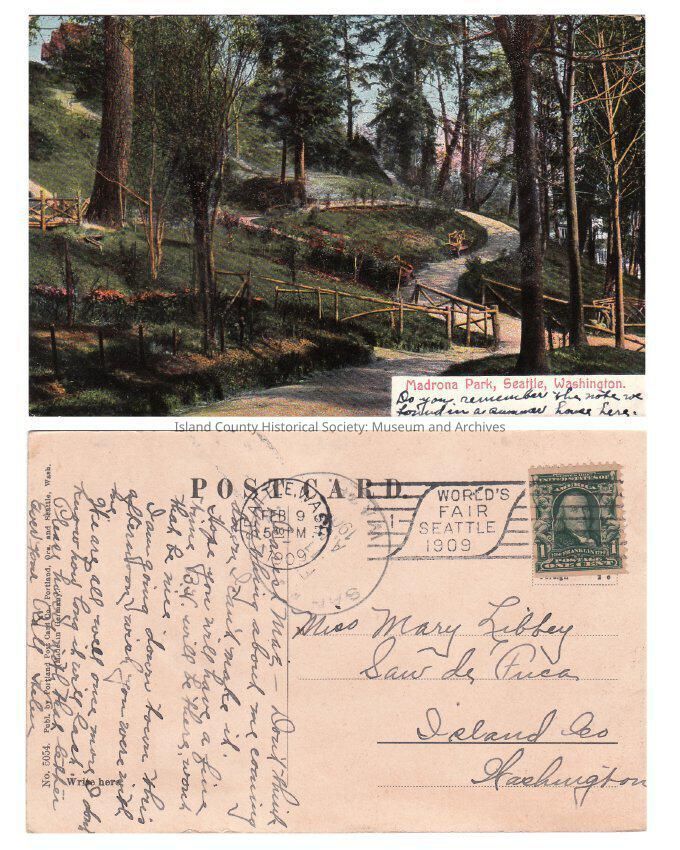 Madrona Park, Seattle, Washington.
Do you remember the note we
found in a summer house here.
Island County Historical Society: Museum and Archives
POST CARD.
SEATTLE, WASH.
FEB 9
1909
WORLD'S
FAIR
SEATTLE
1909
UNITED STATES OF AMERICA
1 FRANKLIN 1
POSTAGE
ONE CENT
Miss Mary Libbey
San de Fuca
Island Co
Washington
Dearest Mae – Don't think
anything about me coming
down, I can't make it.
Hope you will have a fine
time. Bay will be there, wont
that be nice.
I am going down town this
afternoon, wish you were with
me.
We are all well once more, I don't
know how long it will last.
Please hurry and that letter
Ever Your Pal, Helen
Write here.
No. 5054. Publ. by Portland Post Card Co., Portland, Ore. and Seattle, Wash.
Made in Germany.